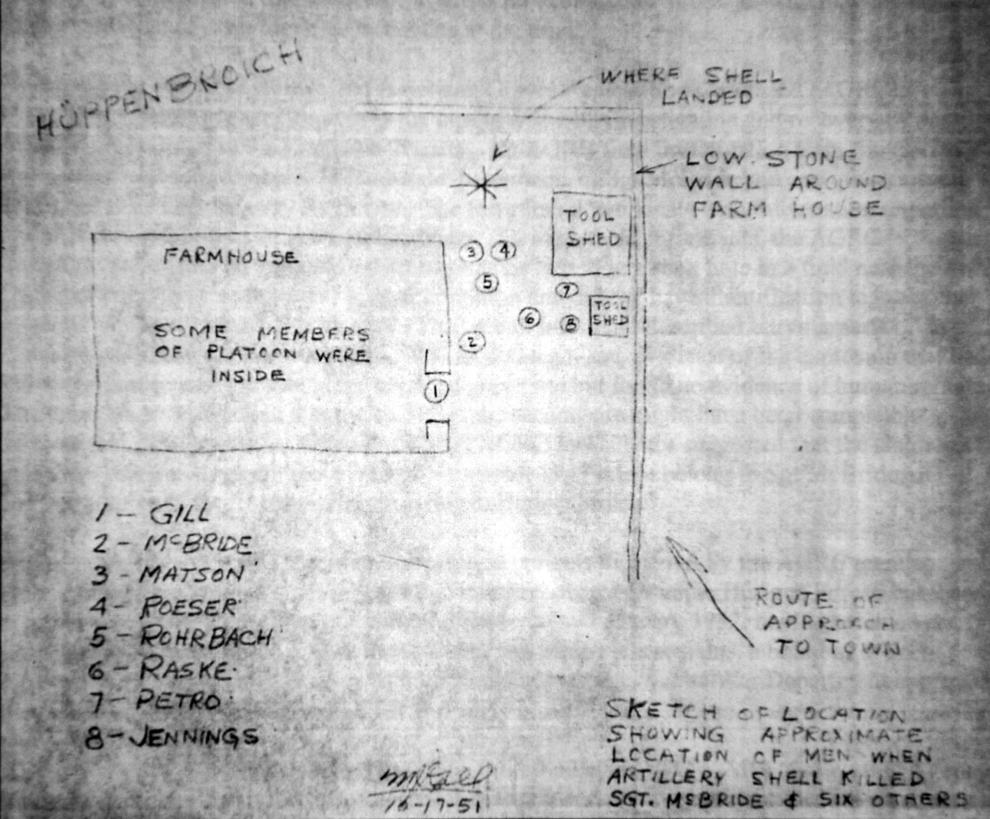 HÜPPENBROICH
WHERE SHELL
LANDED
LOW STONE
WALL AROUND
FARM HOUSE
TOOL
SHED
FARMHOUSE
3 4
5
7
TOOL
SHED
6 8
2
SOME MEMBERS
OF PLATOON WERE
INSIDE
1
1 - GILL
2 - McBRIDE
3 - MATSON
4 - POESER
5 - ROHRBACH
6 - RASKE
7 - PETRO
8 - JENNINGS
ROUTE OF
APPROACH
TO TOWN
SKETCH OF LOCATION
SHOWING APPROXIMATE
LOCATION OF MEN WHEN
ARTILLERY SHELL KILLED
SGT. McBRIDE & SIX OTHERS
10-17-51